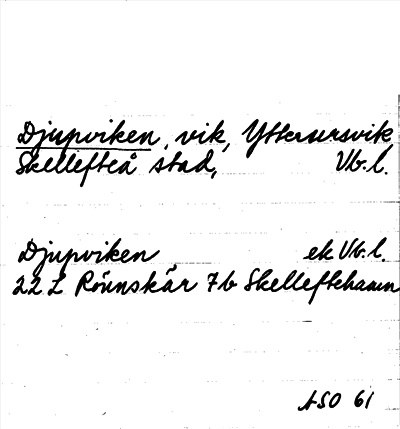 Djupviken, vik, Yttersursvik
Skellefteå stad, Vb.l.
Djupviken ek Vb.l.
22 L Rönnskär 7b Skelleftehamn
ASO 61